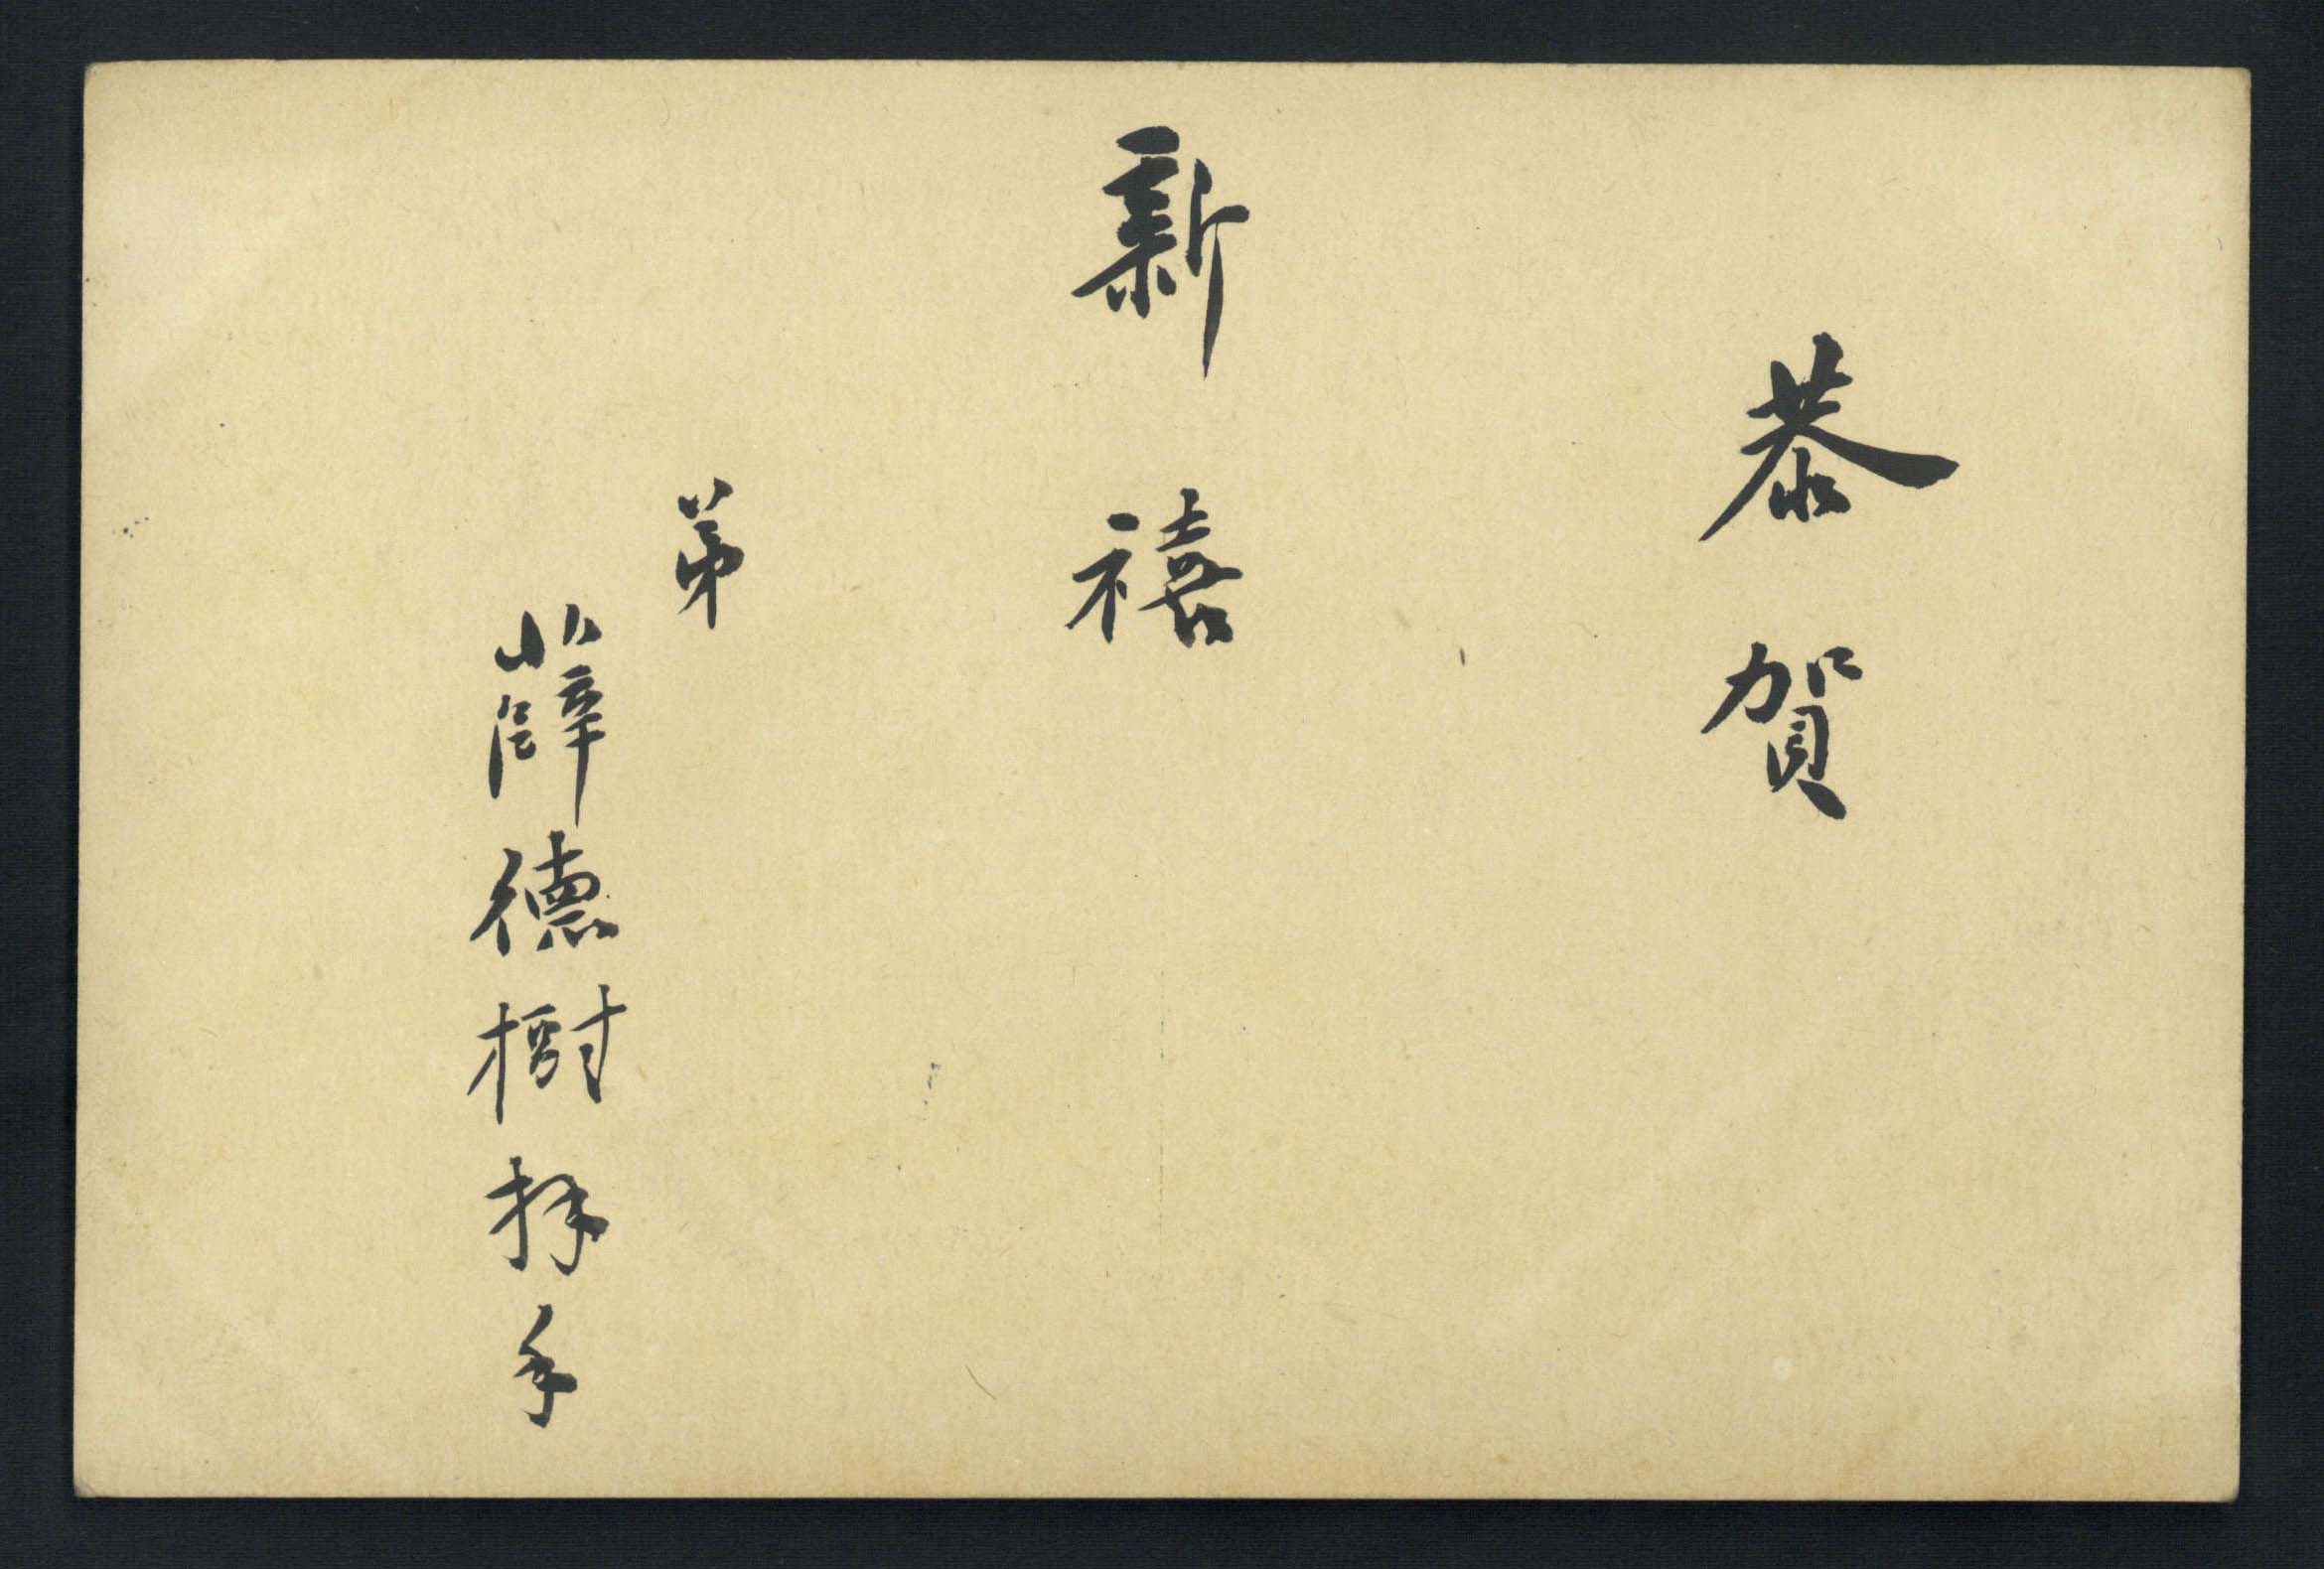 恭賀
新禧
弟
薛德樹拜手